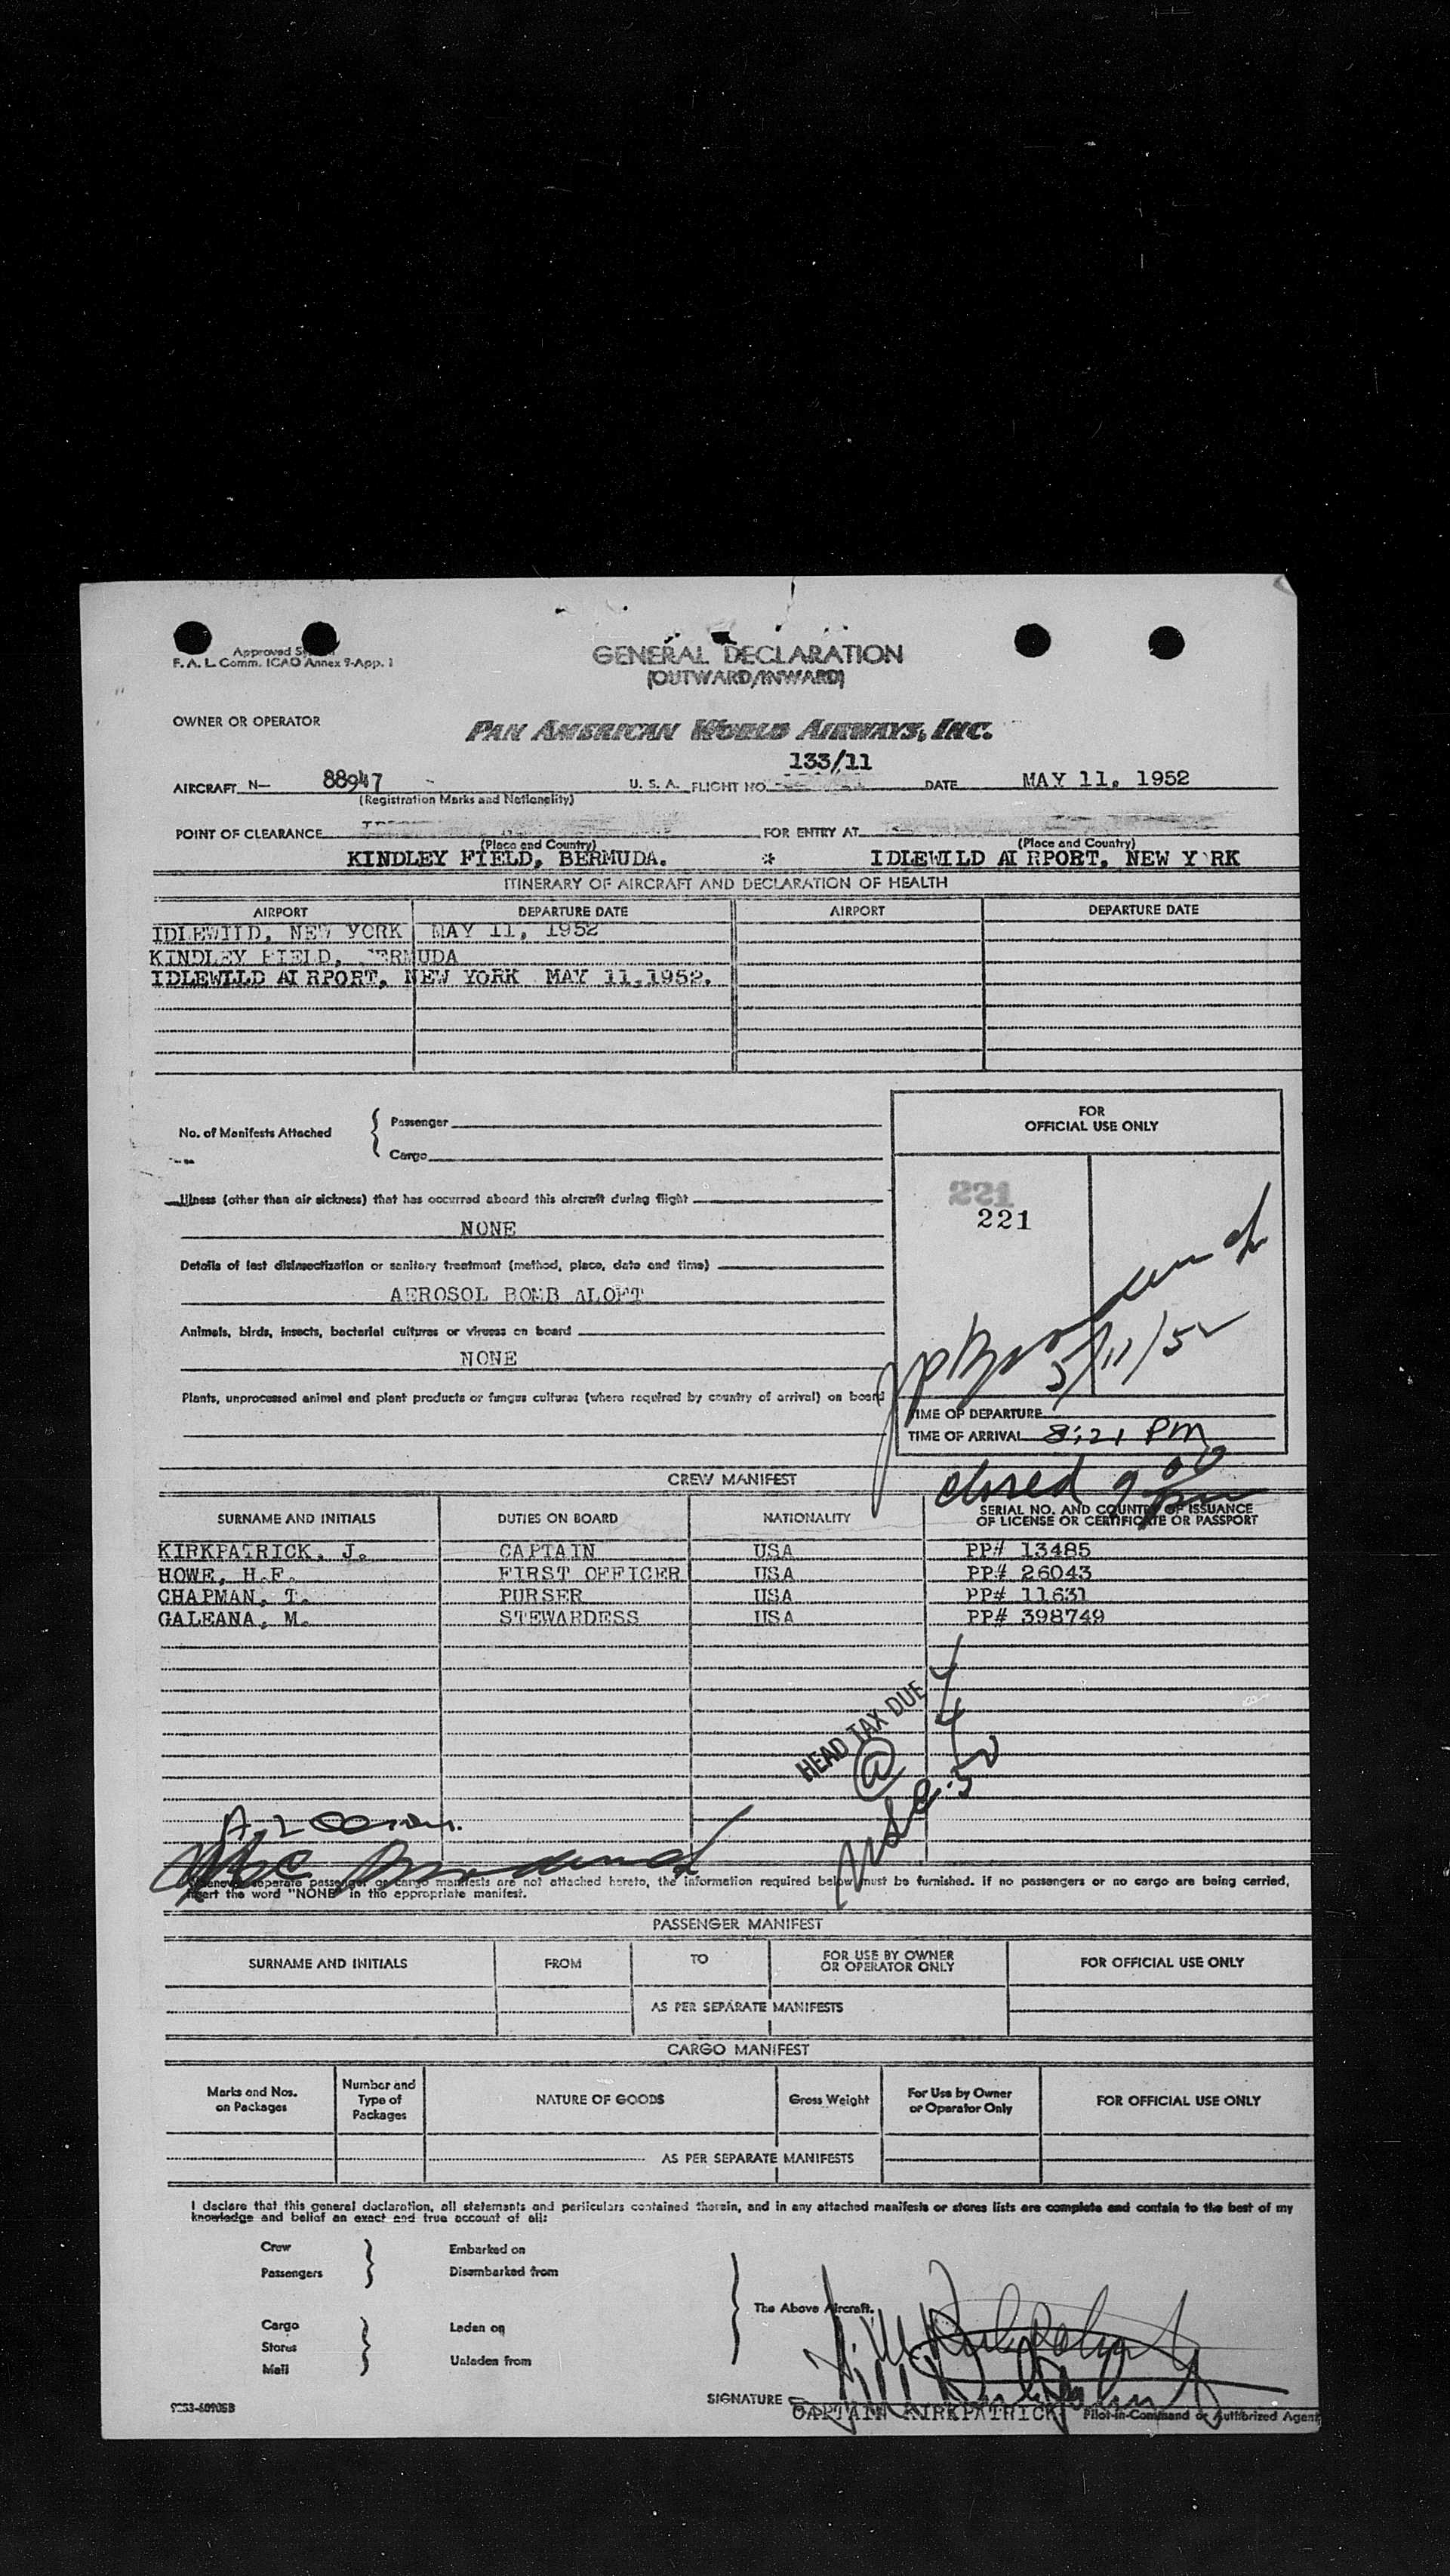 Approved
F. A. L. Comm. ICAO Annex 9-App. 1
GENERAL DECLARATION
(OUTWARD/INWARD)
OWNER OR OPERATOR
PAN AMERICAN WORLD AIRWAYS, INC.
133/11
AIRCRAFT N— 88947 U. S. A. FLIGHT NO. DATE MAY 11, 1952
(Registration Marks and Nationality)
POINT OF CLEARANCE FOR ENTRY AT
(Place and Country) (Place and Country)
KINDLEY FIELD, BERMUDA. * IDLEWILD AIRPORT, NEW Y RK
ITINERARY OF AIRCRAFT AND DECLARATION OF HEALTH
AIRPORT DEPARTURE DATE AIRPORT DEPARTURE DATE
IDLEWILD, NEW YORK MAY 11, 1952
KINDLEY FIELD, BERMUDA
IDLEWILD AIRPORT, NEW YORK MAY 11,1952.
No. of Manifests Attached { Passenger
Cargo
FOR
OFFICIAL USE ONLY
221
221
5/11/52
Illness (other than air sickness) that has occurred aboard this aircraft during flight
NONE
Details of last disinsectization or sanitary treatment (method, place, date and time)
AEROSOL BOMB ALOFT
Animals, birds, insects, bacterial cultures or viruses on board
NONE
Plants, unprocessed animal and plant products or fungus cultures (where required by country of arrival) on board
TIME OF DEPARTURE
TIME OF ARRIVAL 8:21 PM
closed 9 00 pm
CREW MANIFEST
SURNAME AND INITIALS DUTIES ON BOARD NATIONALITY SERIAL NO. AND COUNTRY OF ISSUANCE
OF LICENSE OR CERTIFICATE OR PASSPORT
KIRKPATRICK, J. CAPTAIN USA PP# 13485
HOWE, H.F. FIRST OFFICER USA PP# 26043
CHAPMAN, T. PURSER USA PP# 11631
GALEANA, M. STEWARDESS USA PP# 398749
HEAD TAX DUE
@
Whenever separate passenger or cargo manifests are not attached hereto, the information required below must be furnished. If no passengers or no cargo are being carried,
insert the word "NONE" in the appropriate manifest.
PASSENGER MANIFEST
SURNAME AND INITIALS FROM TO FOR USE BY OWNER
OR OPERATOR ONLY FOR OFFICIAL USE ONLY
AS PER SEPARATE MANIFESTS
CARGO MANIFEST
Marks and Nos.
on Packages Number and
Type of
Packages NATURE OF GOODS Gross Weight For Use by Owner
or Operator Only FOR OFFICIAL USE ONLY
AS PER SEPARATE MANIFESTS
I declare that this general declaration, all statements and particulars contained therein, and in any attached manifests or stores lists are complete and contain to the best of my
knowledge and belief an exact and true account of all:
Crew Embarked on
Passengers Disembarked from
The Above Aircraft.
Cargo Laden on
Stores
Mail Unladen from
SIGNATURE
CAPTAIN KIRKPATRICK Pilot-in-Command or Authorized Agent